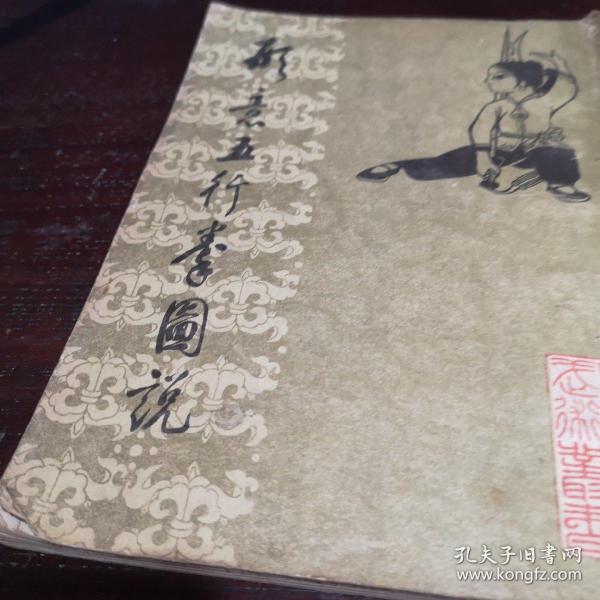 形意五行拳圖說
武術叢書
孔夫子旧书网
www.kongfz.com